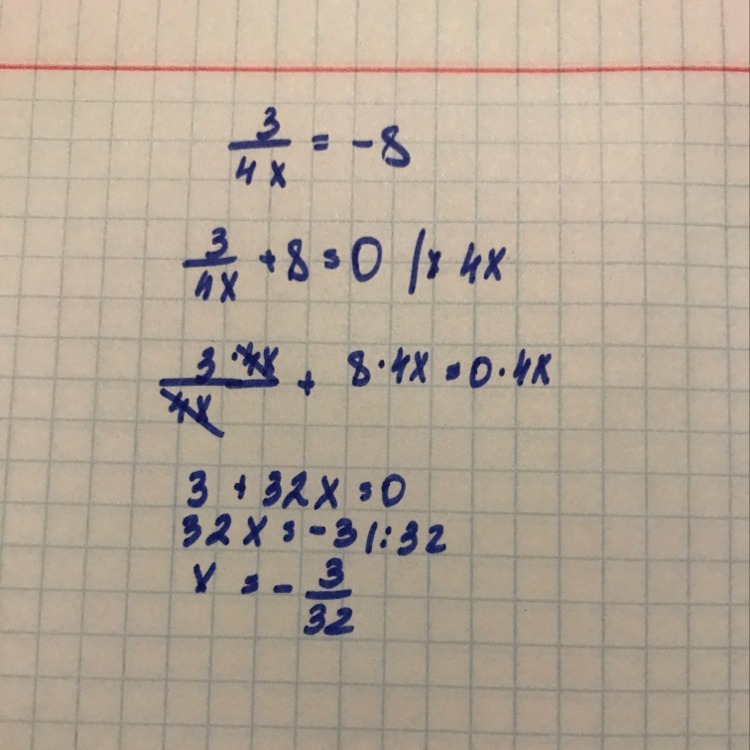 3/4x = -8
3/4x + 8 = 0 /× 4x
3·4x/4x + 8·4x = 0·4x
3 + 32x = 0
32x = -3 /:32
x = -3/32